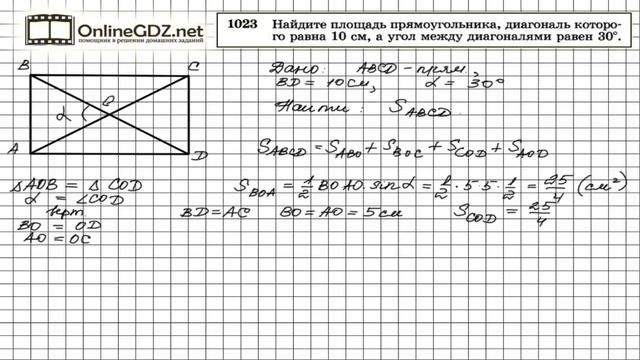 OnlineGDZ.net
помощник в решении домашних заданий
1023 Найдите площадь прямоугольника, диагональ которо-
го равна 10 см, а угол между диагоналями равен 30°.
B
C
O
α
A
D
Дано: ABCD - прям,
BD = 10 см, α = 30°
Найти: S_ABCD
S_ABCD = S_ABO + S_BOC + S_COD + S_AOD
△AOB = △COD
α = ∠COD
верт
BO = OD
AO = OC
S_BOA = 1/2 BO·AO·sin α = 1/2 · 5 · 5 · 1/2 = 25/4 (см²)
BD = AC BO = AO = 5 см S_COD = 25/4